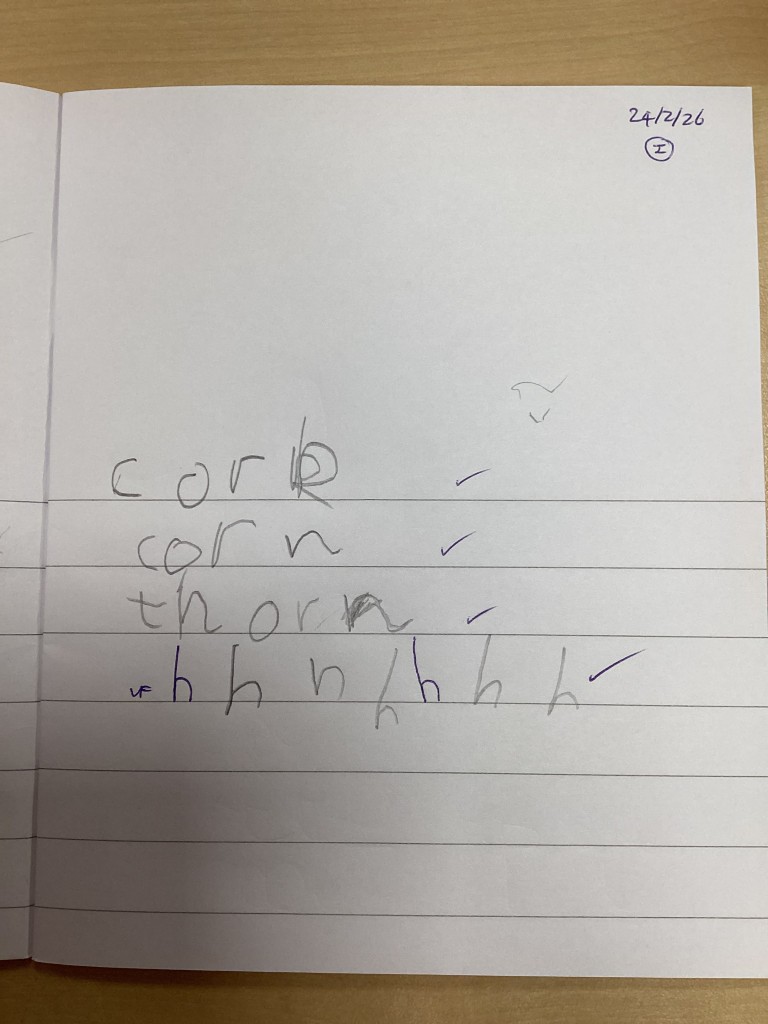 24/2/26
I
cork
corn
thorn
VF h h n h h h h